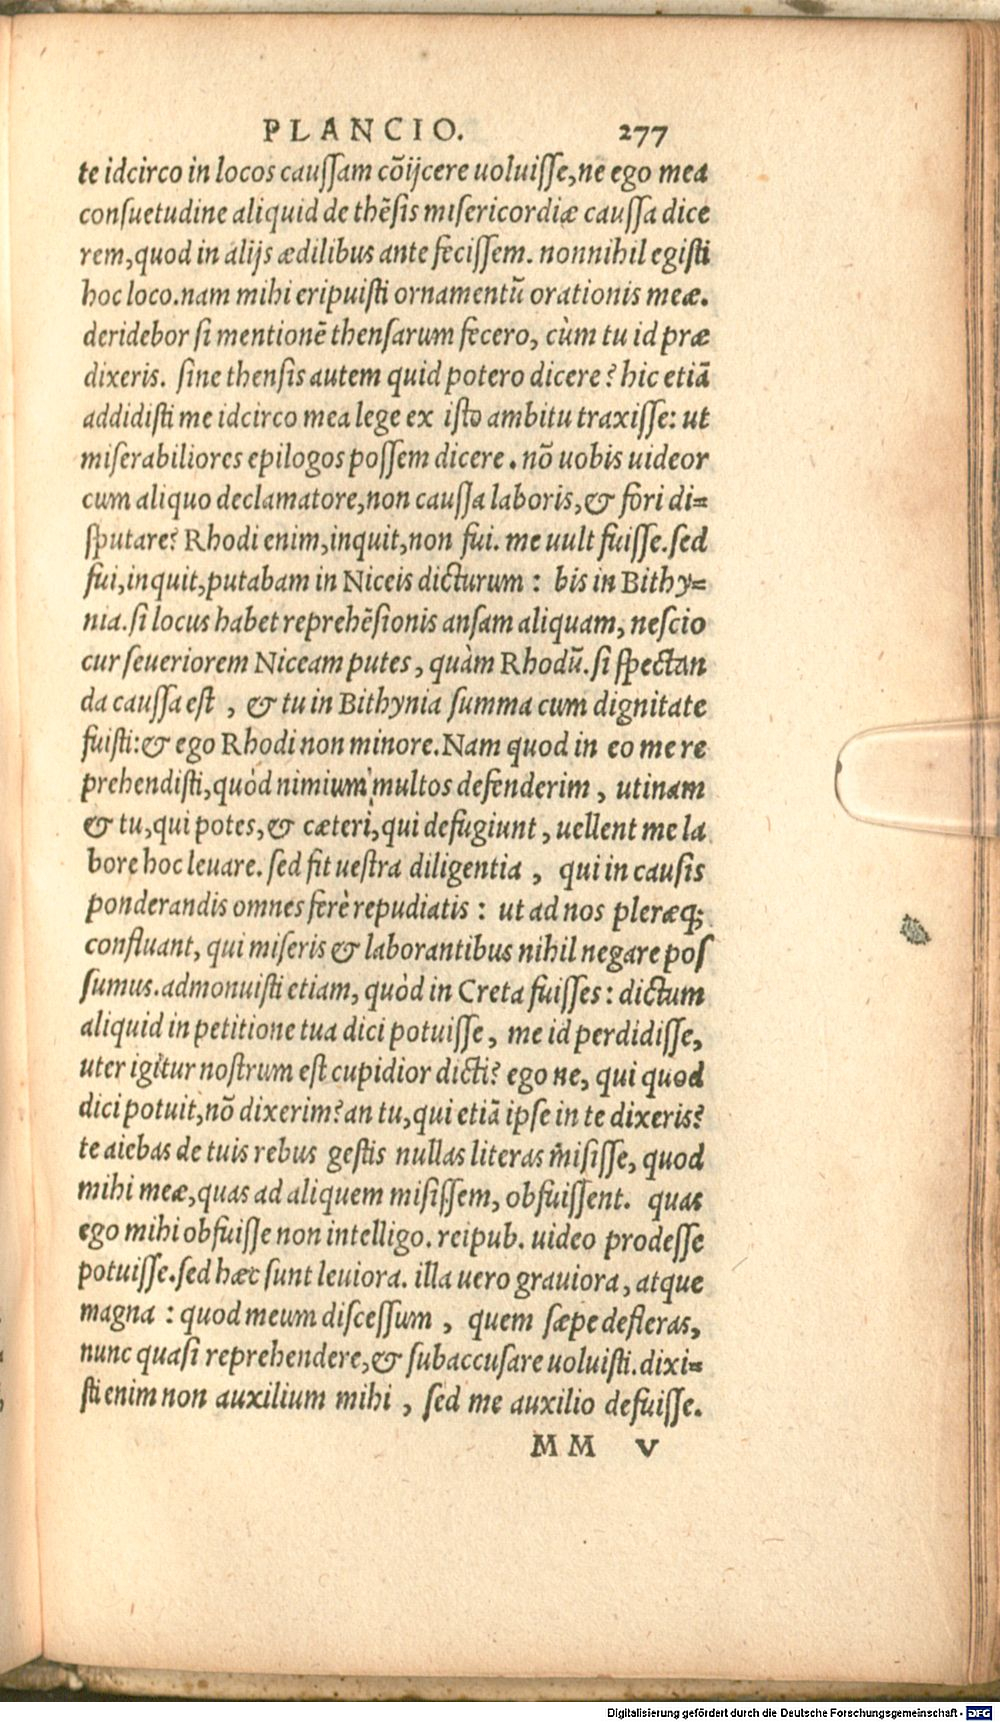 PLANCIO. 277
te idcirco in locos caussam cōijcere uoluisse, ne ego mea
consuetudine aliquid de thēsis misericordiæ caussa dice
rem, quod in alijs ædilibus ante fecissem. nonnihil egisti
hoc loco. nam mihi eripuisti ornamentū orationis meæ.
deridebor si mentionē thensarum fecero, cùm tu id præ
dixeris. sine thensis autem quid potero dicere? hic etiā
addidisti me idcirco mea lege ex isto ambitu traxisse: ut
miserabiliores epilogos possem dicere. nō uobis uideor
cum aliquo declamatore, non caussa laboris, & fori di=
sputare? Rhodi enim, inquit, non fui. me uult fuisse. sed
fui, inquit, putabam in Niceis dicturum: bis in Bithy=
nia. si locus habet reprehēsionis ansam aliquam, nescio
cur seueriorem Niceam putes, quàm Rhodū. si spectan
da caussa est, & tu in Bithynia summa cum dignitate
fuisti: & ego Rhodi non minore. Nam quod in eo me re
prehendisti, quòd nimium multos defenderim, utinam
& tu, qui potes, & cæteri, qui defugiunt, uellent me la
bore hoc leuare. sed fit uestra diligentia, qui in causis
ponderandis omnes ferè repudiatis: ut ad nos pleræq;
confluant, qui miseris & laborantibus nihil negare pos
sumus. admonuisti etiam, quòd in Creta fuisses: dictum
aliquid in petitione tua dici potuisse, me id perdidisse,
uter igitur nostrum est cupidior dicti? ego ne, qui quod
dici potuit, nō dixerim? an tu, qui etiā ipse in te dixeris?
te aiebas de tuis rebus gestis nullas literas misisse, quod
mihi meæ, quas ad aliquem misissem, obfuissent. quas
ego mihi obfuisse non intelligo. reipub. uideo prodesse
potuisse. sed hæc sunt leuiora. illa uero grauiora, atque
magna: quod meum discessum, quem sæpe defleras,
nunc quasi reprehendere, & subaccusare uoluisti. dixi=
sti enim non auxilium mihi, sed me auxilio defuisse.
MM V
Digitalisierung gefördert durch die Deutsche Forschungsgemeinschaft - DFG